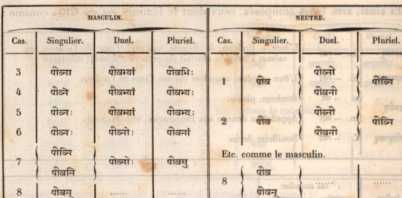 MASCULIN. NEUTRE.
Cas. Singulier. Duel. Pluriel. Cas. Singulier. Duel. Pluriel.
3 पीव्ना पीवभ्यां पीवभिः
4 पीव्ने पीवभ्यां पीवभ्यः
5 पीव्नः पीवभ्यां पीवभ्यः
6 पीव्नः पीव्नोः पीव्नां
7 पीव्नि पीव्नोः पीवसु
पीवनि
8 पीवन् ...... ......
1 पीव पीव्नी
पीवनी
2 पीव पीव्नी
पीवनी
Etc. comme le masculin.
8 पीव ...... ......
पीवन्